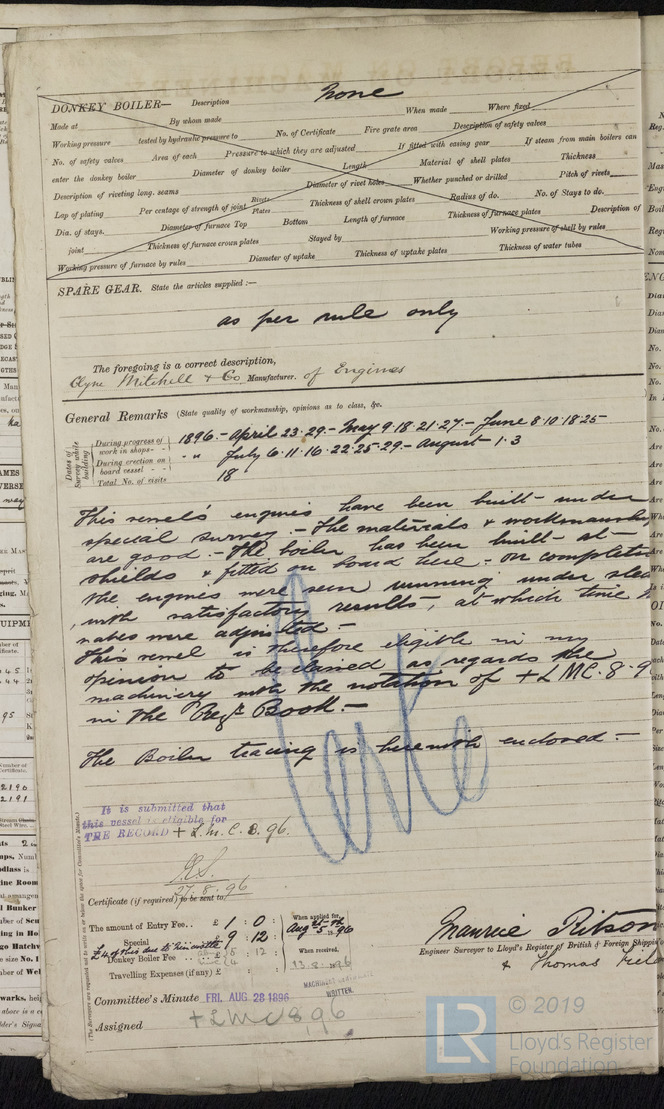 DONKEY BOILER— Description None
Made at By whom made When made Where fixed
Working pressure tested by hydraulic pressure to No. of Certificate Fire grate area Description of safety valves
No. of safety valves Area of each Pressure to which they are adjusted If fitted with easing gear If steam from main boilers can
enter the donkey boiler Diameter of donkey boiler Length Material of shell plates Thickness
Description of riveting long. seams Diameter of rivet holes Whether punched or drilled Pitch of rivets
Lap of plating Per centage of strength of joint Rivets Plates Thickness of shell crown plates Radius of do. No. of Stays to do.
Dia. of stays. Diameter of furnace Top Bottom Length of furnace Thickness of furnace plates Description of
joint Thickness of furnace crown plates Stayed by Working pressure of shell by rules
Working pressure of furnace by rules Diameter of uptake Thickness of uptake plates Thickness of water tubes
SPARE GEAR. State the articles supplied :—
as per rule only
The foregoing is a correct description,
Clyne Mitchell & Co Manufacturer. of Engines
General Remarks (State quality of workmanship, opinions as to class, &c.
Dates of Survey while building
During progress of work in shops - - 1896.- April 23.29.- May 9.18.21.27.- June 8.10.18.25-
During erection on board vessel - - " " July 6.11.16.22.25.29.- August 1.3
Total No. of visits 18
This vessel's engines have been built under
special survey.- The materials & workmanship
are good.- The boiler has been built at
shields & fitted on board here.- on completion
the engines were seen running under
with satisfactory results, at which time
were adjusted-
This vessel is therefore eligible in my
opinion to be classed as regards the
machinery with the notation of + LMC. 8. 9
in the Regr. Book.-
The Boiler tracing is herewith enclosed.-
It is submitted that
this vessel is eligible for
THE RECORD + L.M.C. 8. 96.
27.8.96
Certificate (if required) to be sent to
The amount of Entry Fee.. £ 1 : 0 :
Special £ 9 : 12 :
Donkey Boiler Fee .. £
Travelling Expenses (if any) £
When applied for,
When received,
13.8.1896
MACHINERY CERTIFICATE
WRITTEN.
Maurice Ritson
Engineer Surveyor to Lloyd's Register of British & Foreign Shipping
& Thomas
Committee's Minute FRI. AUG. 28 1896
Assigned + LMC 8,96
© 2019
LR
Lloyd's Register
Foundation